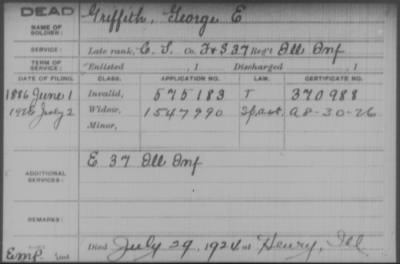 DEAD
NAME OF SOLDIER: Griffith, George E
SERVICE: Late rank, C. S. Co. F&S 37 Reg't Ill Inf
TERM OF SERVICE: Enlisted , 1 Discharged , 1
DATE OF FILING. CLASS. APPLICATION NO. LAW. CERTIFICATE NO.
1886 June 1 Invalid, 575183 370988
1926 July 2 Widow, 1547990 A 8-30-26
Minor,
ADDITIONAL SERVICES: E 37 Ill Inf
REMARKS:
Died July 29, 1924 at Henry, Ill